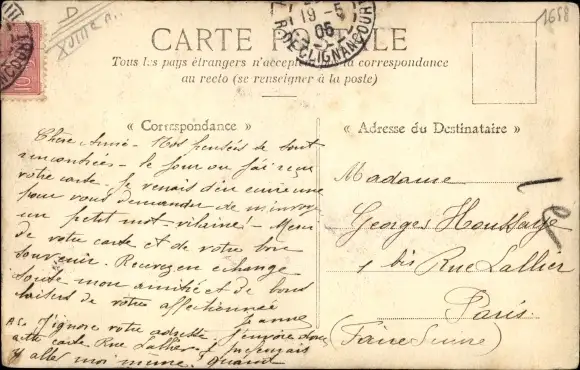 1658
19-5
05
R. DE CLIGNANCOURT
CARTE POSTALE
Tous les pays étrangers n'acceptent pas la correspondance
au recto (se renseigner à la poste)
« Correspondance »
« Adresse du Destinataire »
Chère Amie - Nos pensées se sont
rencontrées - le jour où j'ai reçu
votre carte. Je venais d'en
pour vous demander de m'envoyer
un petit mot - vilaine! - Merci
de votre carte et de votre bon
souvenir. Recevez en échange
toute mon amitié et de bons
baisers de votre affectionnée
Jeanne
J'ignore votre adresse j'envoie donc
cette carte Rue Lallier
aller moi même. Quand
Madame
Georges Houssaye
1 bis Rue Lallier
Paris
(Faire Suivre)